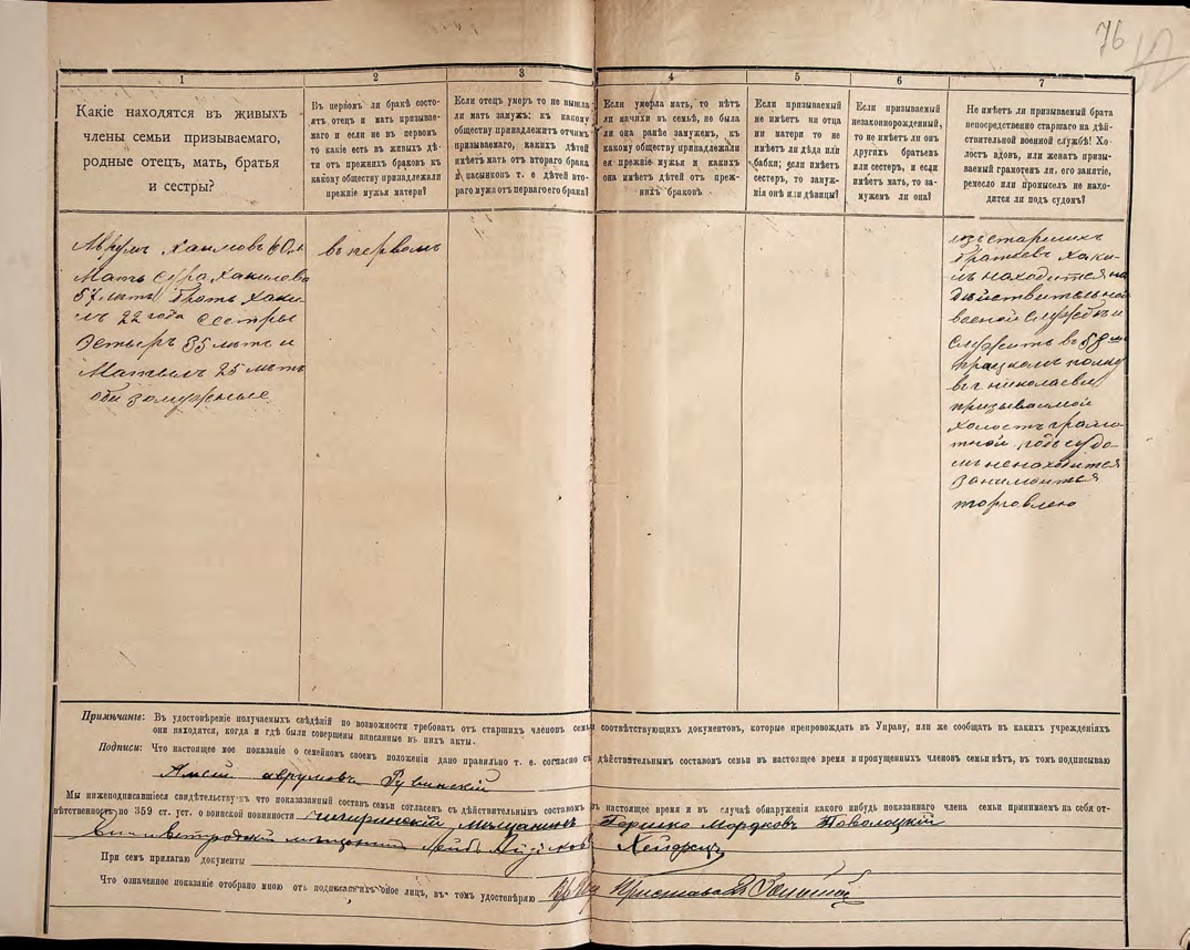 76
1
2
3
4
5
6
7
Какіе находятся въ живыхъ
члены семьи призываемаго,
родные отецъ, мать, братья
и сестры?
Въ первомъ ли бракѣ состо-
ятъ отецъ и мать призывае-
маго и если не въ первомъ
то какіе есть въ живыхъ дѣ-
ти отъ прежнихъ браковъ къ
какому обществу принадлежали
прежніе мужья матери?
Если отецъ умеръ то не вышла
ли мать замужъ; къ какому
обществу принадлежитъ отчимъ
призываемаго, какихъ дѣтей
имѣетъ мать отъ втораго брака
и пасынковъ т. е дѣтей вто-
раго мужа отъ перваго его брака?
Если умерла мать, то нѣтъ
ли мачихи въ семьѣ, не была
ли она ранѣе замужемъ, къ
какому обществу принадлежали
ея прежніе мужья и какихъ
она имѣетъ дѣтей отъ преж-
нихъ браковъ?
Если призываемый
не имѣетъ ни отца
ни матери то не
имѣетъ ли дѣда или
бабки; если имѣетъ
сестеръ, то замуж-
нія онѣ или дѣвицы?
Если призываемый
незаконнорожденный,
то не имѣетъ ли онъ
другихъ братьевъ
или сестеръ, и если
имѣетъ мать, то за-
мужемъ ли она?
Не имѣетъ ли призываемый брата
непосредственно старшаго на дѣй-
ствительной военной службѣ! Хо-
лостъ вдовъ, или женатъ призы-
ваемый грамотенъ ли, его занятіе,
ремесло или промыселъ не нахо-
дится ли подъ судомъ?
Аврумъ Хаимовъ 60 л
Мать Сура Хакилова
57 лѣтъ братъ Хаки-
лъ 22 года сестры
Эстыръ 35 лѣтъ и
Матылъ 25 лѣтъ
оби замужные
въ первомъ
изъ старшихъ
братьевъ Хаки-
лъ находится на
дѣйствительной
военой службѣ и
служитъ въ 58 мъ
Пражскомъ полку
въ г николаеви
призываемой
холостъ грамо-
тной подъ судо-
мъ ненаходится
Занимается
торговлею
Примѣчаніе: Въ удостовѣреніе получаемыхъ свѣдѣній по возможности требовать отъ старшихъ членовъ семьи соотвѣтствующихъ документовъ, которые препровождать въ Управу, или же сообщать въ какихъ учрежденіяхъ
они находятся, когда и гдѣ были совершены вписанные въ нихъ акты.
Подписи: Что настоящее мое показаніе о семейномъ своемъ положеніи дано правильно т. е. согласно съ дѣйствительнымъ составомъ семьи въ настоящее время и пропущенныхъ членовъ семьи нѣтъ, въ томъ подписываю
аврумовъ Рувинскій
Мы нижеподписавшіеся свидѣтельствуемъ что показазанный составъ семьи согласенъ съ дѣйствительнымъ составомъ въ настоящее время и въ случаѣ обнаруженія какого нибудь показаннаго члена семьи принимаемъ на себя от-
вѣтственность по 359 ст. уст. о воинской повинности чигиринскій мѣщанинъ Гершко Мордковъ Поволоцкій
Елисаветградскій мѣщанинъ Лейбъ
При семъ прилагаю документы
Что означенное показаніе отобрано мною отъ подписавшихъ оное лицъ, въ томъ удостовѣряю Пристава